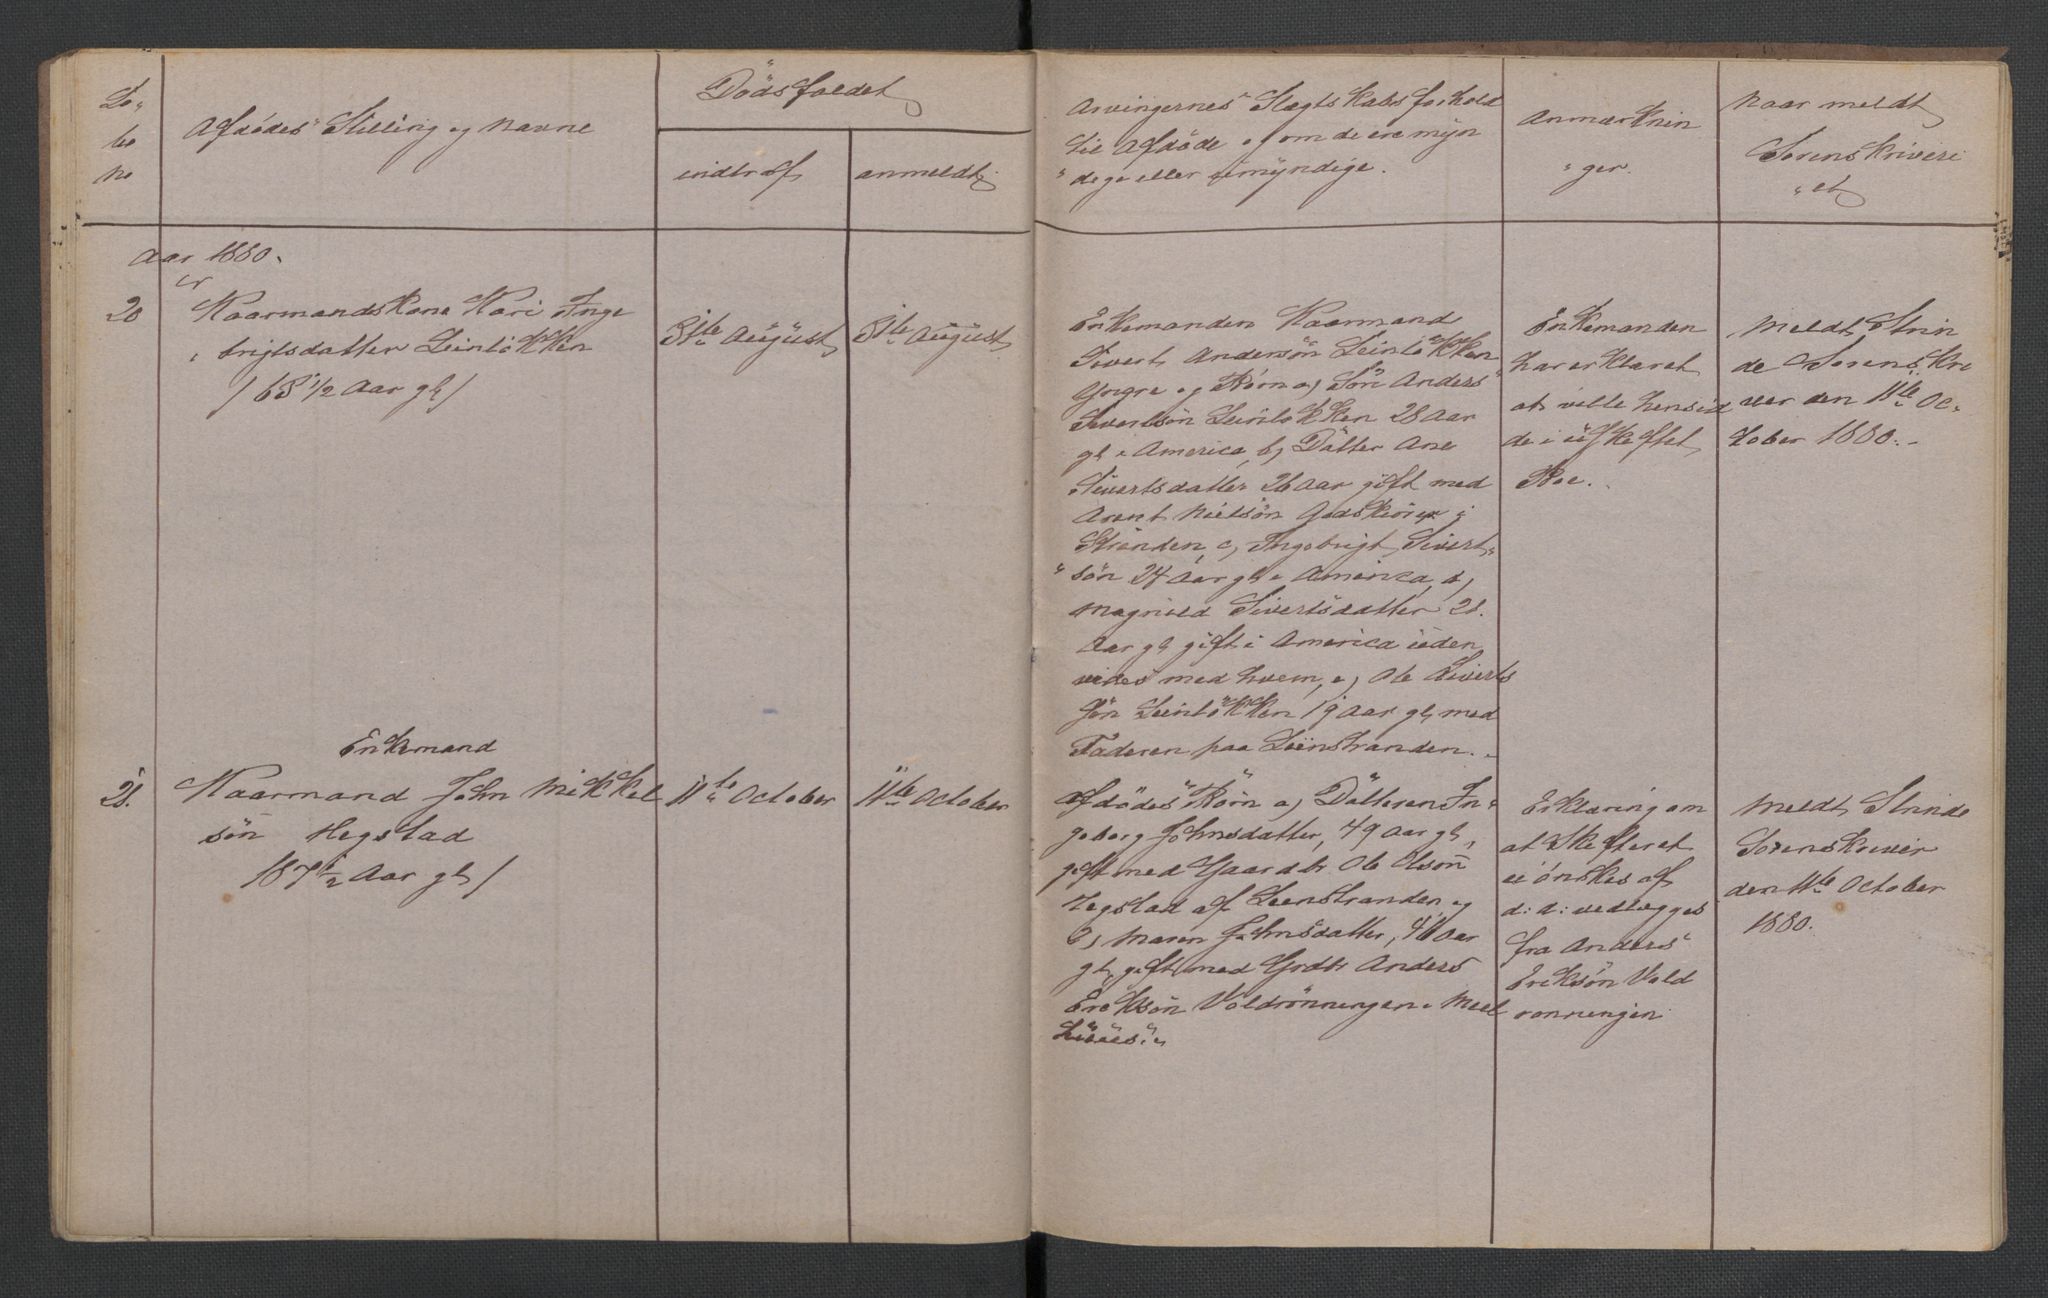 Lø-
be
no
Afdödes Stilling og navne
Dödsfaldet
indtraf
anmeldt
Arvingernes Slægtskabsforhold
til Afdöde og om de ere myn
"dige eller umyndige.
Anmærknin
"ger.
naar meldt
Sorenskriveri
"et
Aar 1880.
20
Kaarmandskone Kari Inge
brigtsdatter Leinlökken
/68 1/2 Aar gl/
31te August
31te August
Enkemanden Kaarmand
Sivert Andersön Leinlökken
yngre og Börn a, Sön Anders
Sivertsön Leinlökken 28 Aar
gl i America, b, Datter Ane
Sivertsdatter 26 Aar gift med
Arent Nielsön i
Strinden, c, Ingebrigt Sivert
"sön 24 Aar gl i America, d,
Magnild Sivertsdatter 21.
Aar gl gift i America uden
vides med hvem, e, Ole Siverts
sön Leinlökken 19 Aar gl med
Faderen paa Leinstranden.
Enkemanden
har erklæret
at ville hensid
de i uskiftet
Boe.
Meldt Strin
de Sorenskri
ver den 11te Oc-
tober 1880.
Enkemand
21.
Kaarmand John Mikkel
sön Hegstad
/87 1/2 Aar gl/
11te October
11te October
Afdödes Börn a, Datteren In
geborg Johnsdatter, 49 Aar gl,
gift med Gaardbr Ole Olsön
Hegstad af Leinstranden og
b, Maren Johnsdatter, 46 Aar
gl, gift med Grdbr Anders
Eriksön Voldrönningen i Meel
huus.
Erklæring om
at Skifteret
ei önskes af
d: d: vedlægges
fra Anders
Eriksön Vold
ronningen
Meldt Strinde
Sorenskriver
den 11te October
1880.